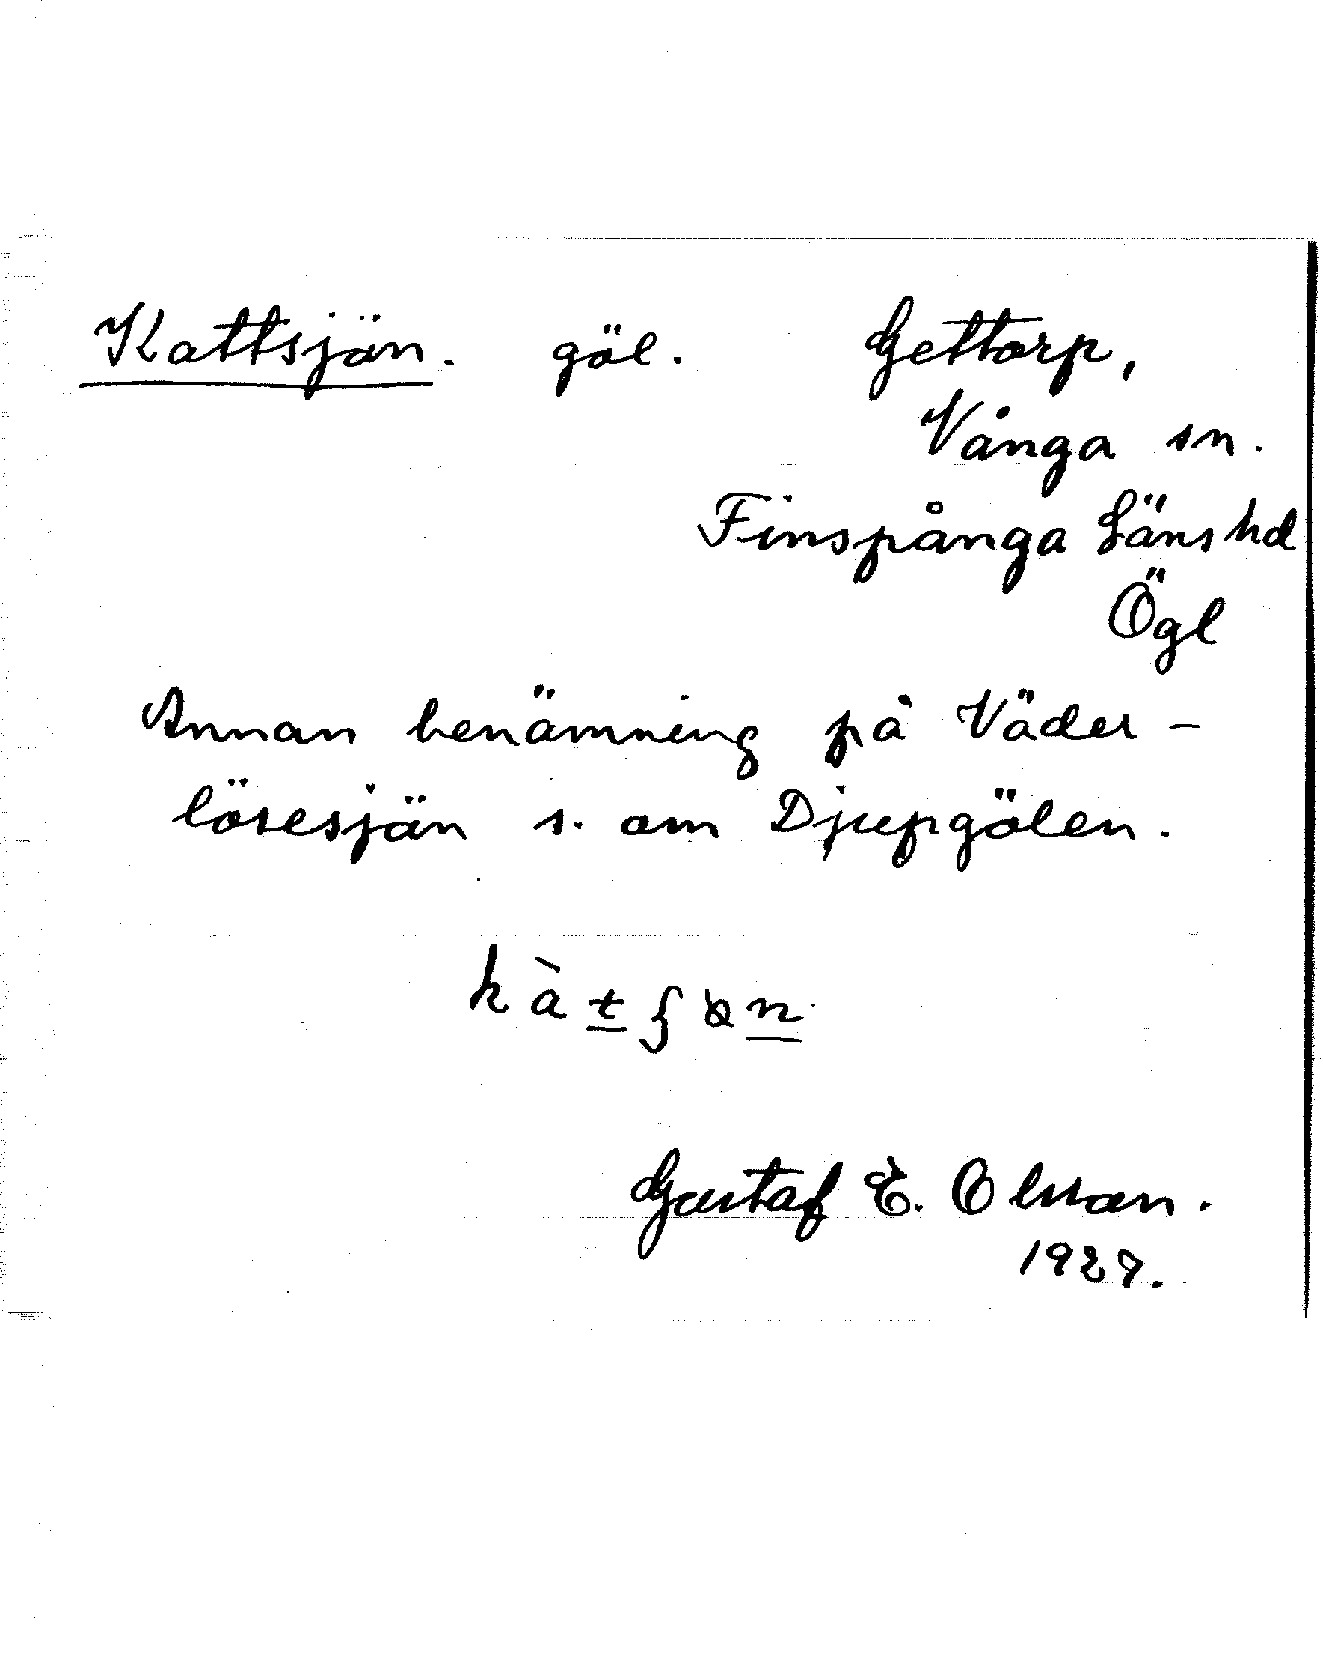 Kattsjön. göl. Gettorp,
Vånga sn.
Finspånga Läns hd
Ögl
Annan benämning på Väder-
lösesjön s. om Djupgölen.
Gustaf E. Olsson.
1927.